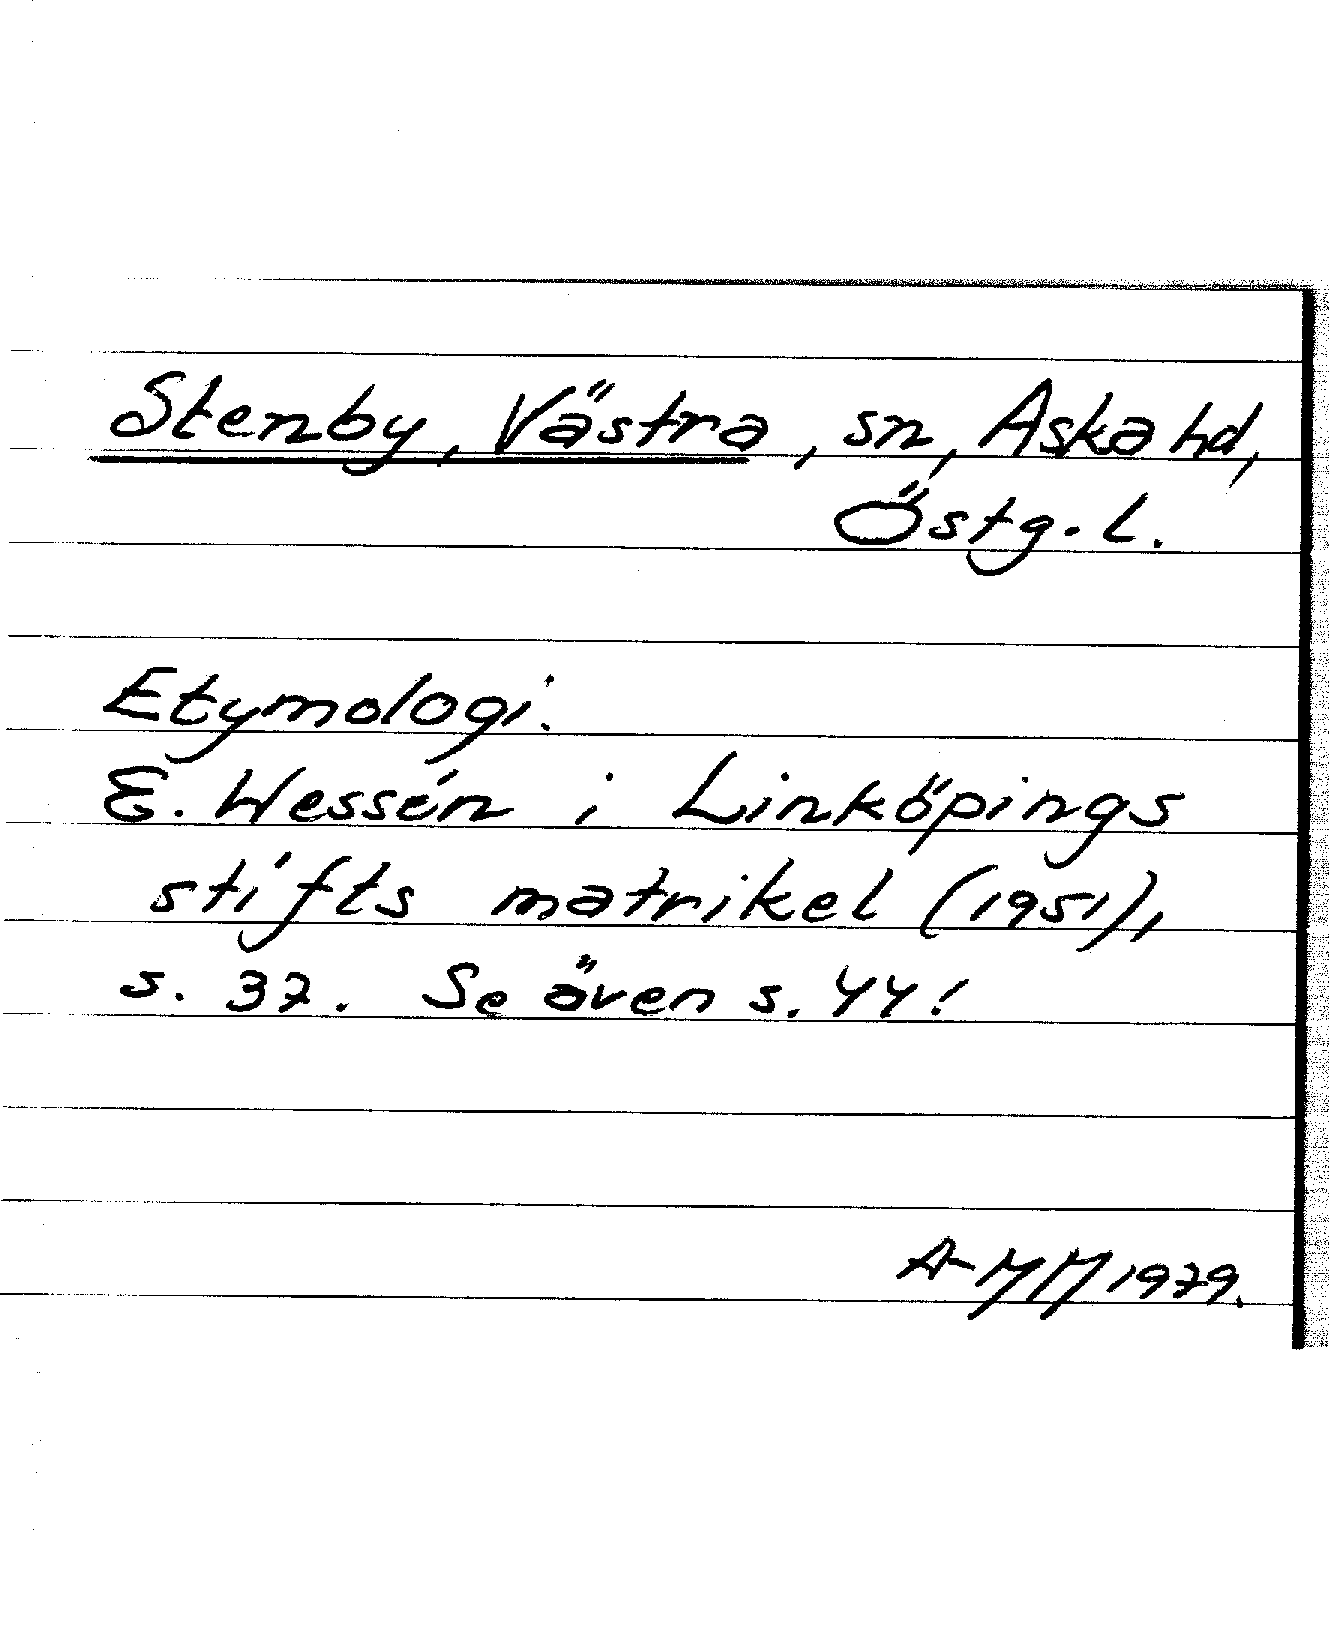 Stenby, Västra, sn, Aska hd,
Östg. l.
Etymologi.
E. Wessén i Linköpings
stifts matrikel (1951),
s. 37. Se även s. 44!
A-MM 1979.